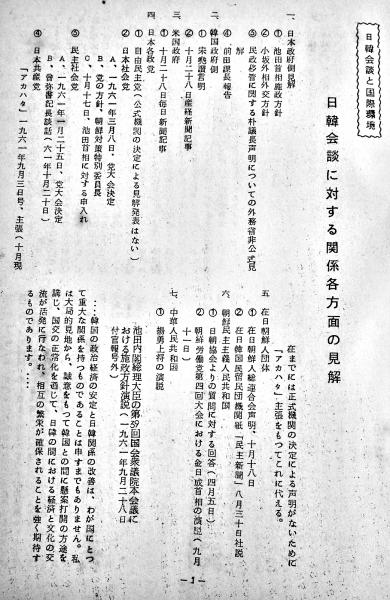 日韓会談と国際環境
日韓会談に対する関係各方面の見解
一、日本政府側見解
① 池田首相施政方針
② 小坂外相外交方針
③ 民政移管に関する朴議長声明についての外務省非公式見
解
④ 前田課長報告
二 韓国政府側
① 宋
② 十月二十八日産経新聞記事
三 米国政府
① 十月二十八日毎日新聞記事
四 日本各政党
① 自由民主党(公式機関の決定による見解発表はない)
② 日本社会党
A、一九六一年三月八日、党大会決定
B、党の方針、朝鮮対策特別委員長
C、十月十七日、池田首相に対する申入れ
③ 民主社会党
A、一九六一年一月二十五日、党大会決定
B、曽祢書記長談話(六一年十月二十日)
④ 日本共産党
「アカハタ」一九六一年九月三日号、主張(十月現
在までには正式機関の決定による声明がないために
「アカハタ」主張をもつてこれに代える。)
五 在日朝鮮人団体
① 在日本朝鮮人総連合会声明、十月十八日
② 在日韓国人居留民団機関紙「民主新聞」八月三十日社説
六、朝鮮民主主義人民共和国
① 日朝協会よりの質問に対する回答(四月五日)
② 朝鮮労働党第四回大会における金日成首相の演説(九月
十一日)
七、中華人民共和国
① 上将の演説
池田内閣総理大臣の第39回国会衆議院本会議に
おける施政方針演説(一九六一年九月二十八日
付官報号外)
…韓国の政治経済の安定と日韓関係の改善は、わが国にとつ
て重大な関係を持つものであることは申すまでもありません。私
は大局的見地から、誠意をもつて韓国との間に懸案打開の方途を
講じ、国交の正常化を通じて、日韓の間における経済と文化の交
流が活発に行なわれ、相互の繁栄が確保されることを強く期待す
るものであります。…
-1-